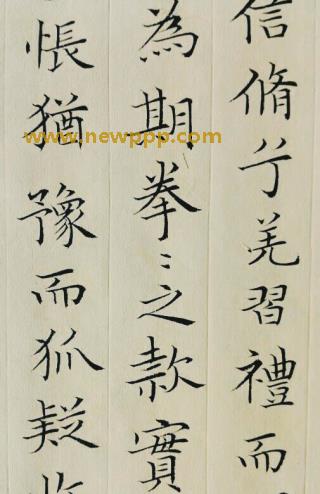 信脩兮羌習禮而
為期拳〻之款實
悵猶豫而狐疑
www.newppp.com